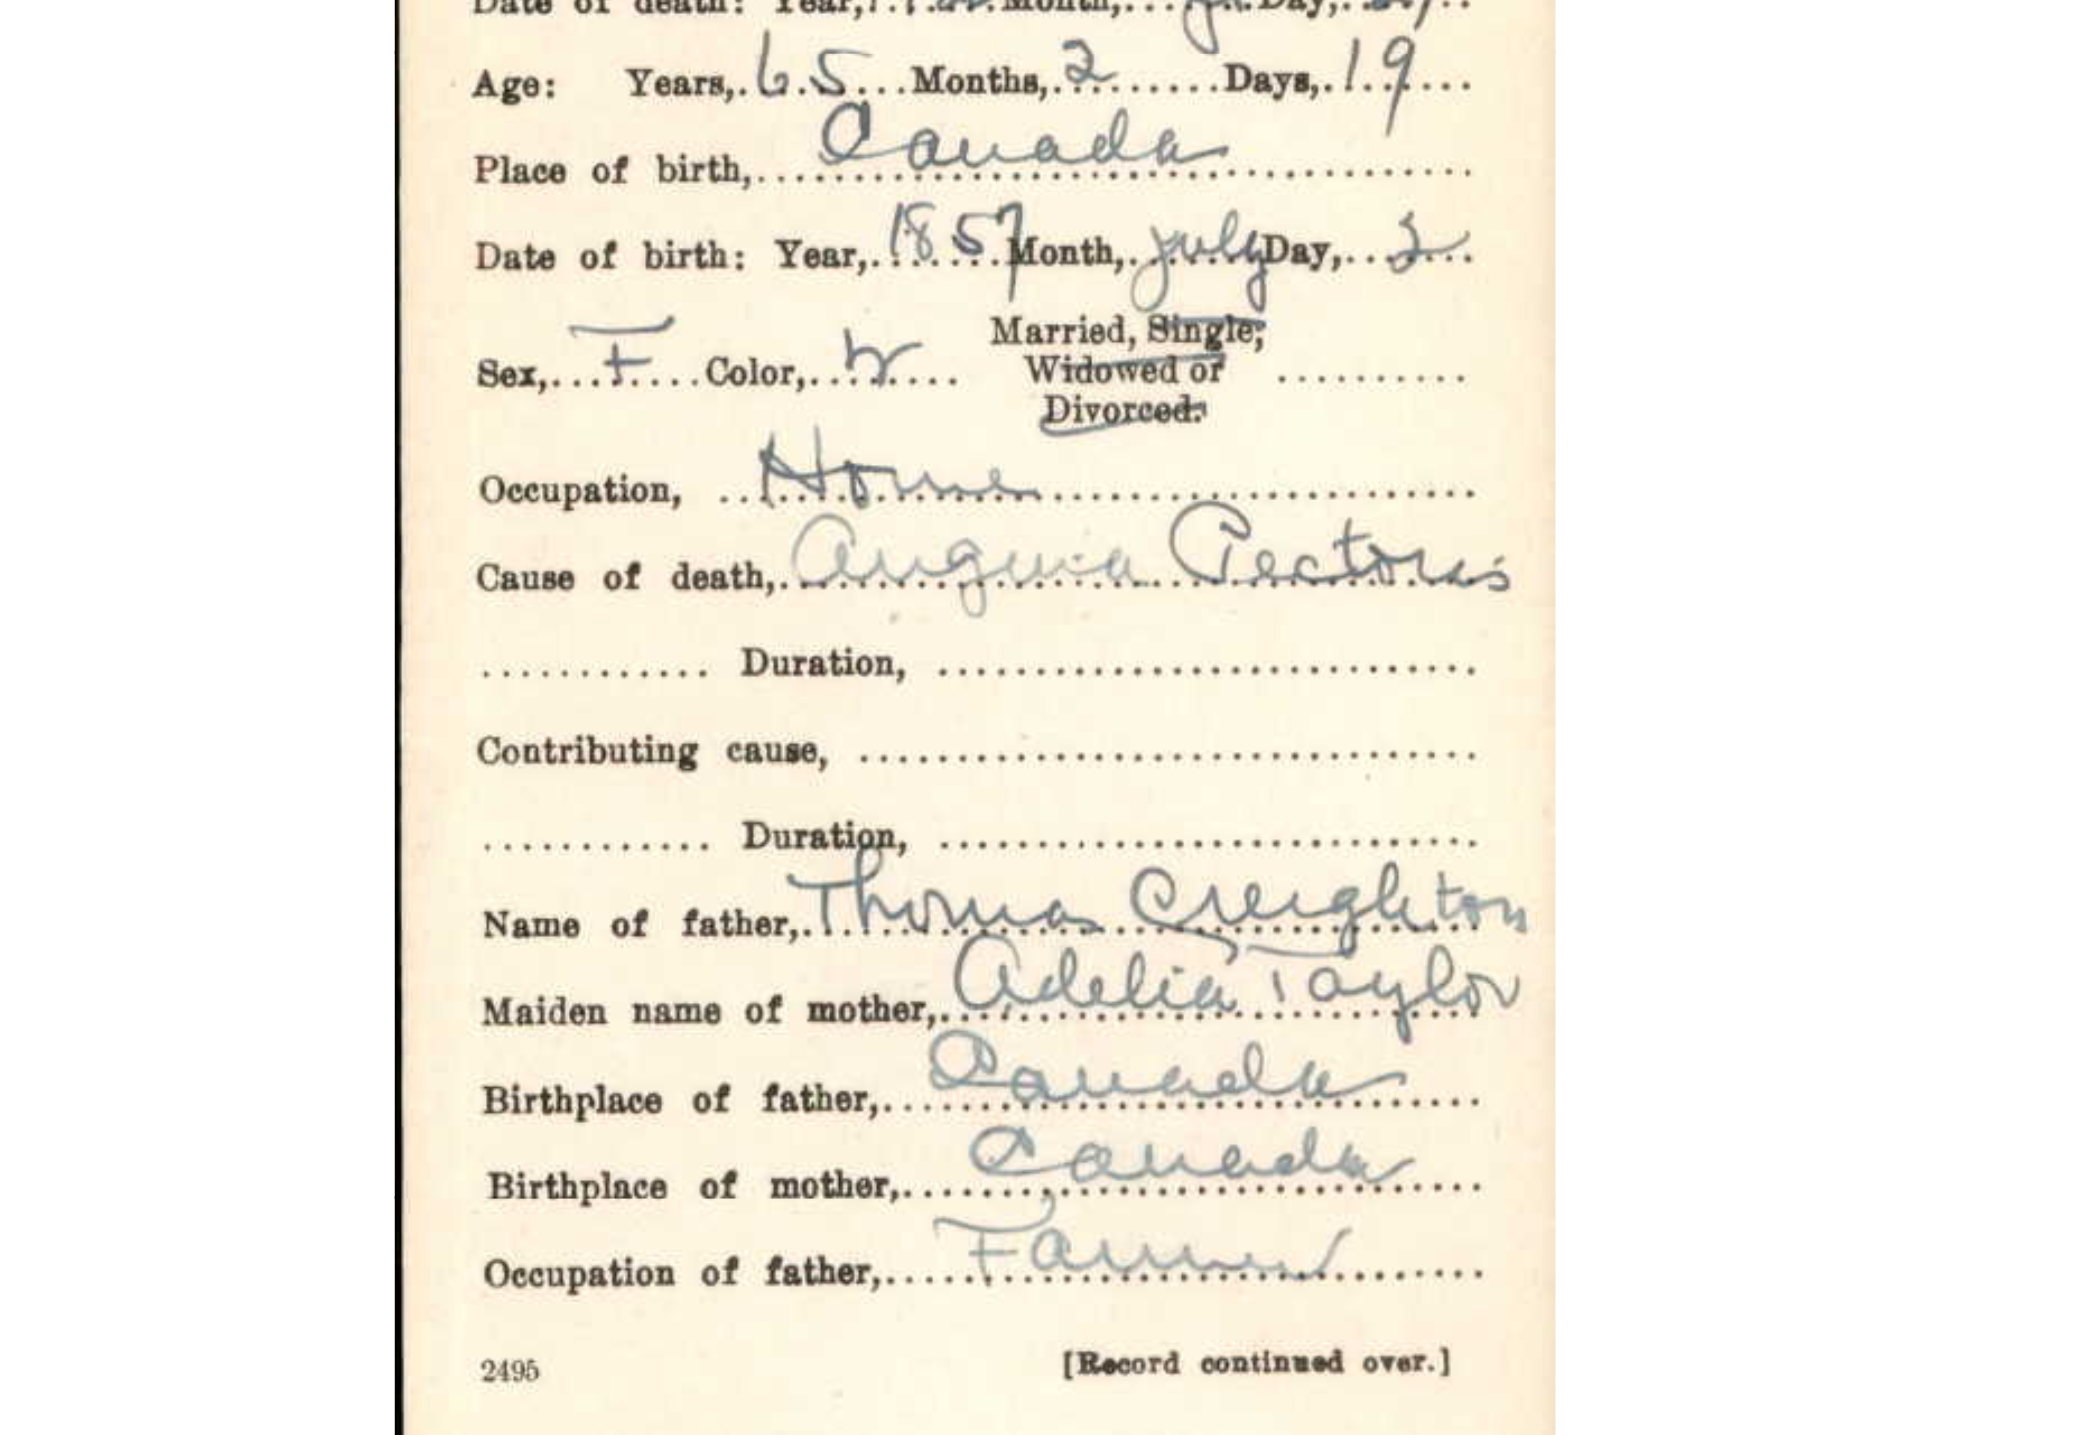 Date of death: Year, Month, Day,
Age: Years, 65 Months, 2 Days, 19
Place of birth, Canada
Date of birth: Year, 1857 Month, July Day, 2
Married, Single,
Sex, F Color, W Widowed or
Divorced.
Occupation, Home
Cause of death, Angina Pectoris
Duration,
Contributing cause,
Duration,
Name of father, Thomas Creighton
Maiden name of mother, Adelia Taylor
Birthplace of father, Canada
Birthplace of mother, Canada
Occupation of father, Farmer
2495 [Record continued over.]